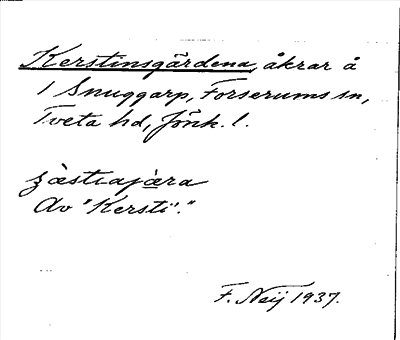 Kerstinsgärdena, åkrar å
1 Snuggarp, Forserums sn,
Tveta hd, Jönk. l.
šæstiajæra
Av "Kersti".
F. Neij 1937.